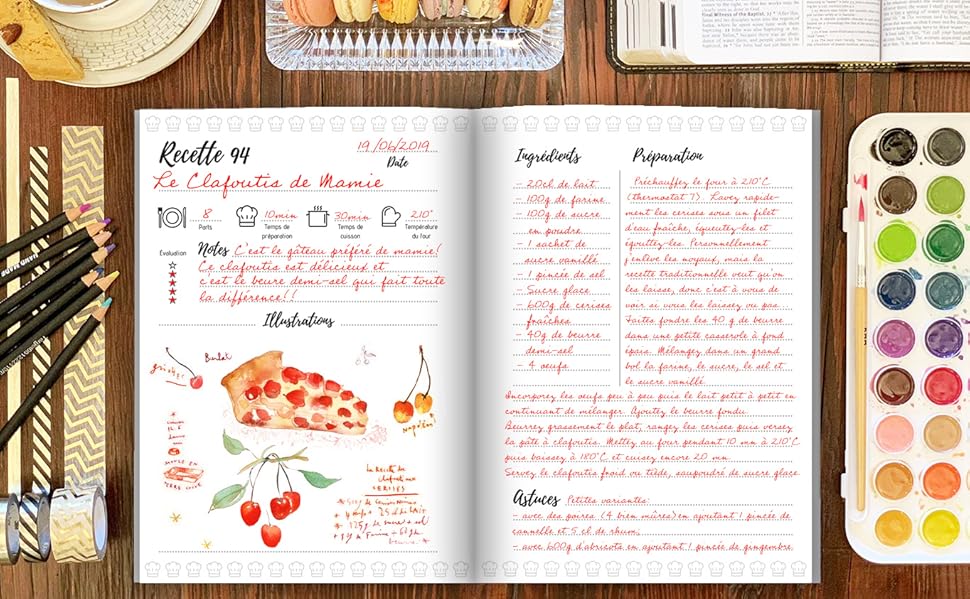 Recette 94
19/06/2019
Date
Le Clafoutis de Mamie
8
Parts
10min
Temps de
préparation
30min
Temps de
cuisson
210°
Température
du four
Évaluation
Notes C'est le gâteau préféré de mamie!
Ce clafoutis est délicieux et
c'est le beure demi-sel qui fait toute
la différence!!
Illustrations
Burlat
griottes
Napoléon
La Recette du
Clafouti aux
CERISES
Ingrédients
- 20cl de lait
- 100g de farine
- 100g de sucre
en poudre
- 1 sachet de
sucre vanillé
- 1 pincée de sel
- Sucre glace
- 600g de cerises
fraîches
- 40g de beurre
demi-sel
- 4 oeufs
Préparation
Préchauffez le four à 210°C
(thermostat 7). Lavez rapide-
ment les cerises sous un filet
d'eau fraîche, équeutez-les et
égouttez-les. Personnellement
j'enlève les noyaux, mais la
recette traditionnelle veut qu'on
les laisse, donc c'est à vous de
voir si vous les laissez ou pas.
Faites fondre les 40 g de beurre
dans une petite casserole à fond
épais. Mélangez dans un grand
bol la farine, le sucre, le sel et
le sucre vanillé.
Incorporez les oeufs peu à peu puis le lait petit à petit en
continuant de mélanger. Ajoutez le beurre fondu.
Beurrez grassement le plat, rangez les cerises puis versez
la pâte à clafoutis. Mettez au four pendant 10 mn à 210°C
puis baissez à 180°C et cuisez encore 20 mn.
Servez le clafoutis froid ou tiède, saupoudré de sucre glace.
Astuces Petites variantes:
- avec des poires (4 bien mûres) en ajoutant 1 pincée de
cannelle et 5 cl de rhum;
- avec 600g d'abricots en ajoutant 1 pincée de gingembre.